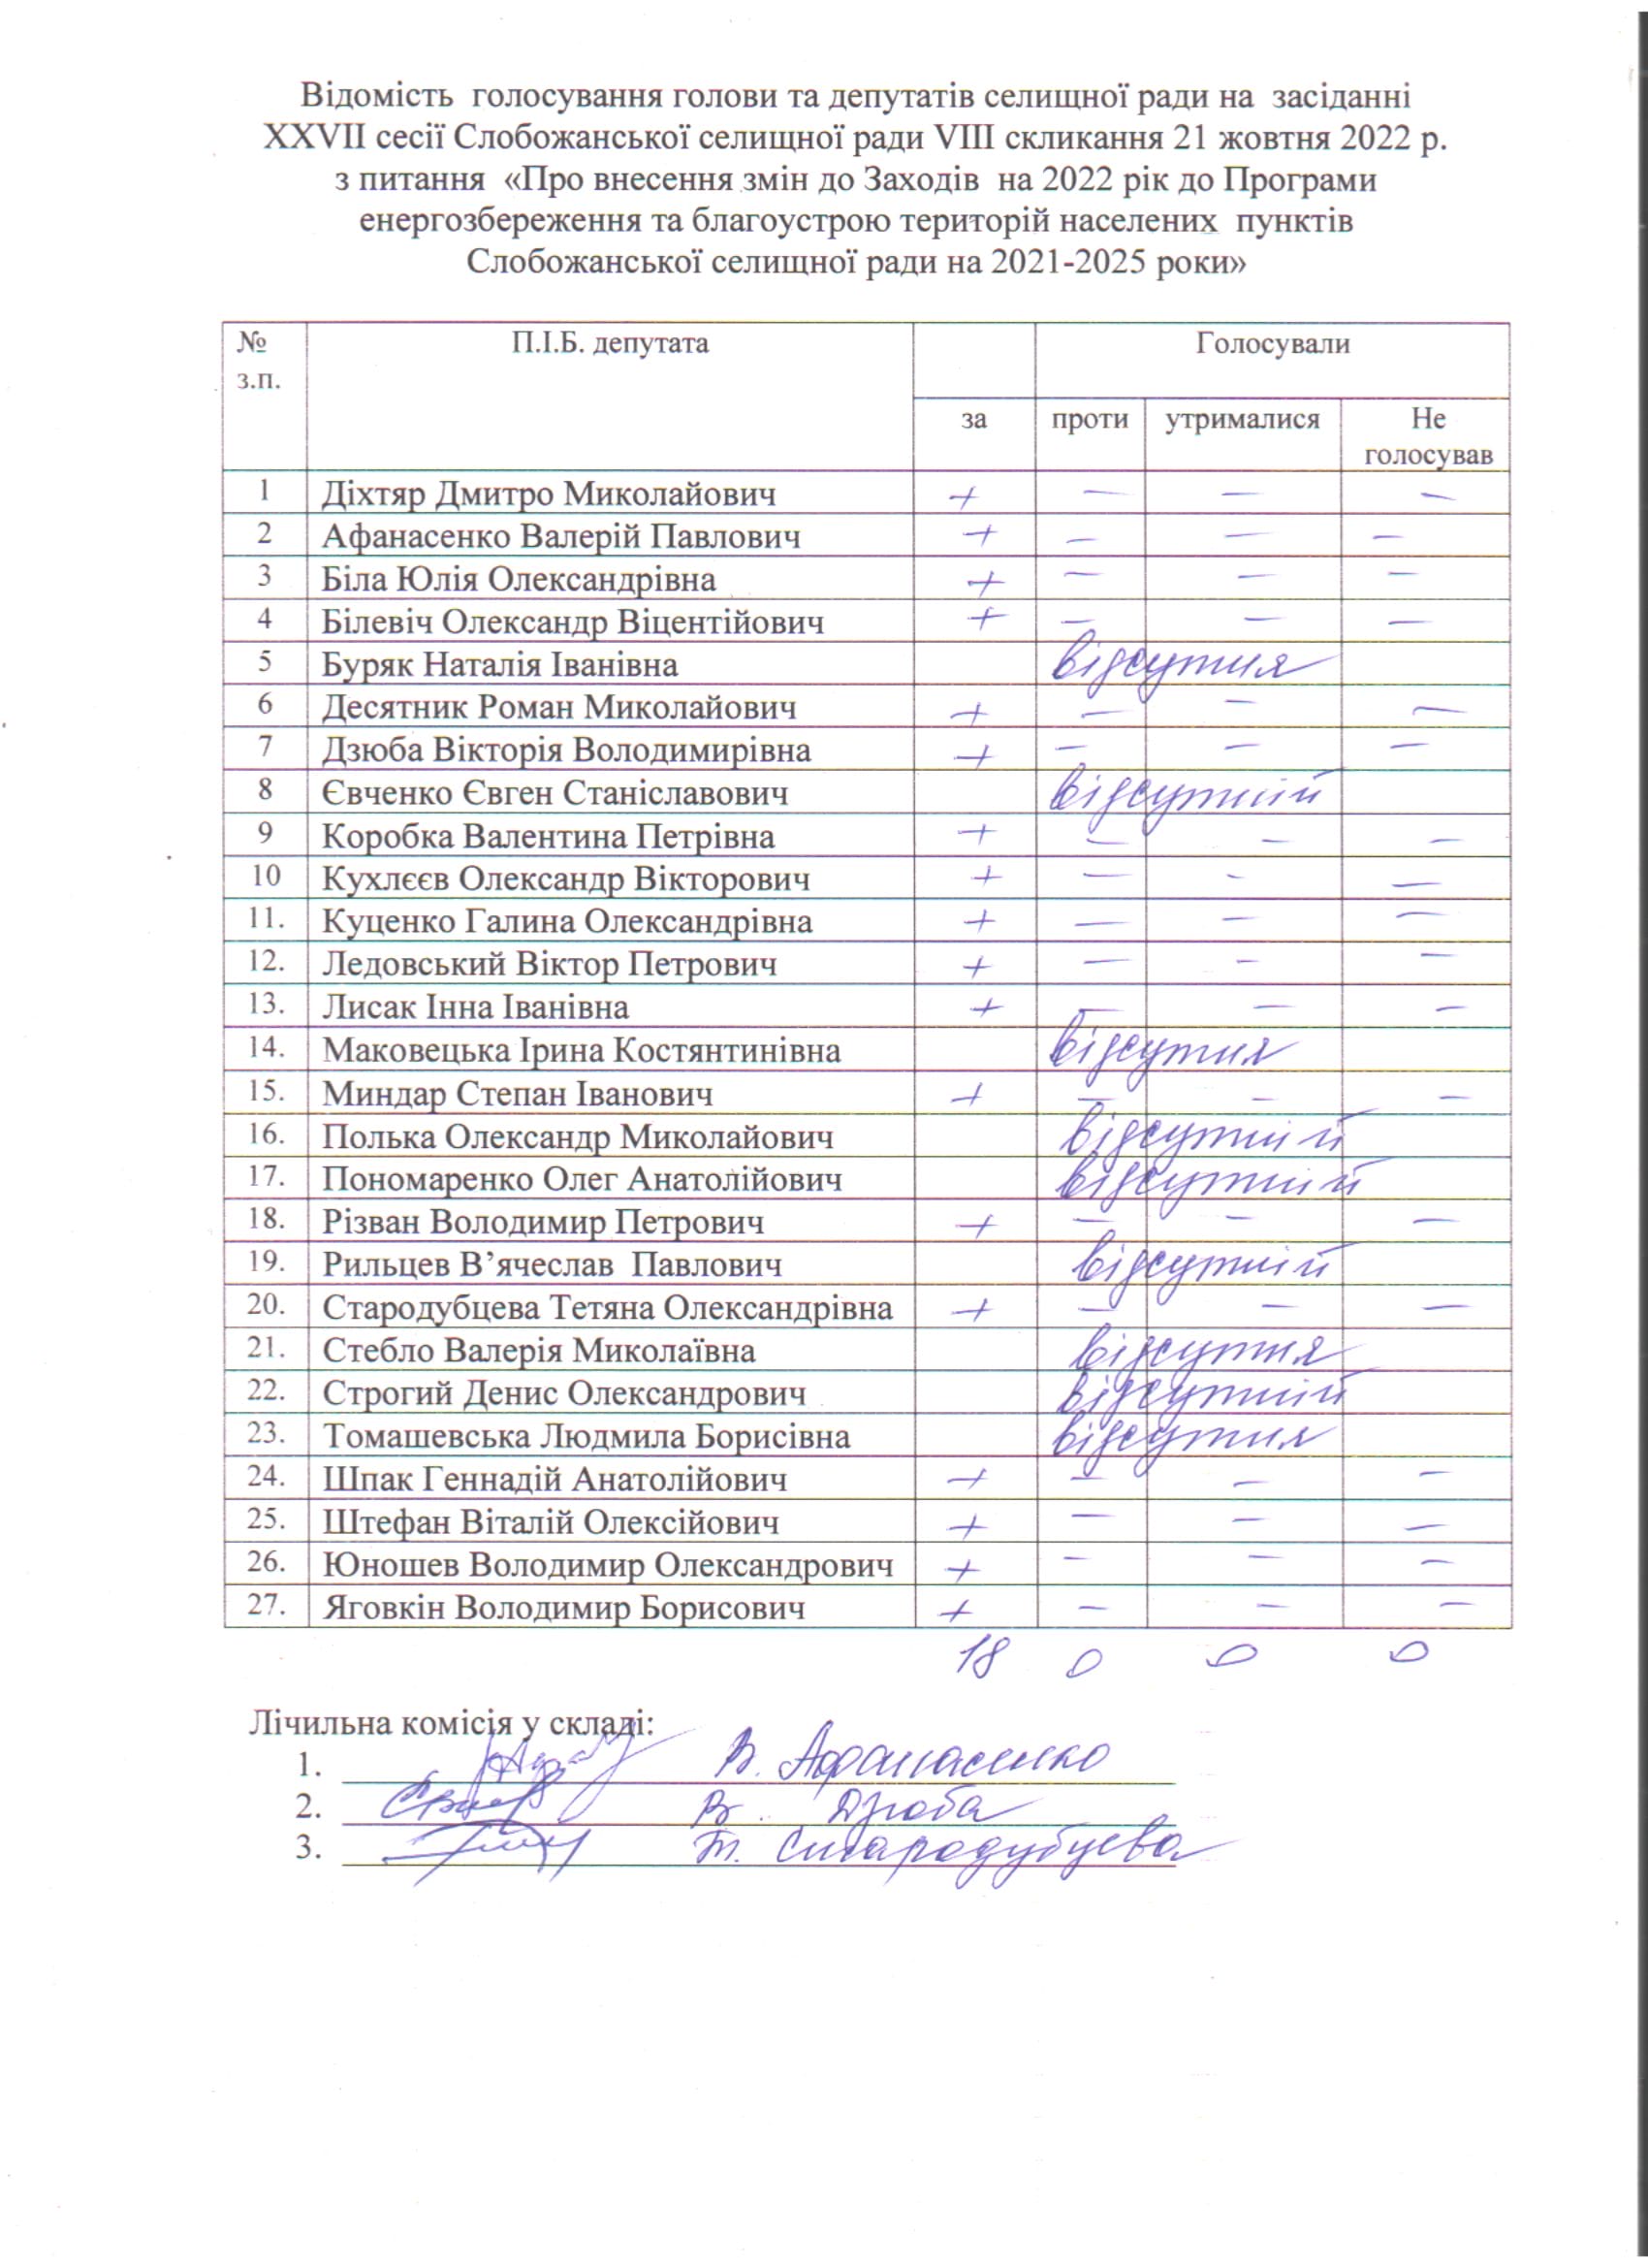 Відомість голосування голови та депутатів селищної ради на засіданні
XXVII сесії Слобожанської селищної ради VIII скликання 21 жовтня 2022 р.
з питання «Про внесення змін до Заходів на 2022 рік до Програми
енергозбереження та благоустрою територій населених пунктів
Слобожанської селищної ради на 2021-2025 роки»
№ з.п. П.І.Б. депутата Голосували
за проти утрималися Не голосував
1 Діхтяр Дмитро Миколайович + – – –
2 Афанасенко Валерій Павлович + – – –
3 Біла Юлія Олександрівна + – – –
4 Білевіч Олександр Віцентійович + – – –
5 Буряк Наталія Іванівна відсутня
6 Десятник Роман Миколайович + – – –
7 Дзюба Вікторія Володимирівна + – – –
8 Євченко Євген Станіславович відсутній
9 Коробка Валентина Петрівна + – – –
10 Кухлєєв Олександр Вікторович + – – –
11. Куценко Галина Олександрівна + – – –
12. Ледовський Віктор Петрович + – – –
13. Лисак Інна Іванівна + – – –
14. Маковецька Ірина Костянтинівна відсутня
15. Миндар Степан Іванович + – – –
16. Полька Олександр Миколайович відсутній
17. Пономаренко Олег Анатолійович відсутній
18. Різван Володимир Петрович + – – –
19. Рильцев В’ячеслав Павлович відсутній
20. Стародубцева Тетяна Олександрівна + – – –
21. Стебло Валерія Миколаївна відсутня
22. Строгий Денис Олександрович відсутній
23. Томашевська Людмила Борисівна відсутня
24. Шпак Геннадій Анатолійович + – – –
25. Штефан Віталій Олексійович + – – –
26. Юношев Володимир Олександрович + – – –
27. Яговкін Володимир Борисович + – – –
18 0 0 0
Лічильна комісія у складі:
1. В. Афанасенко
2. В. Дзюба
3. Т. Стародубцева